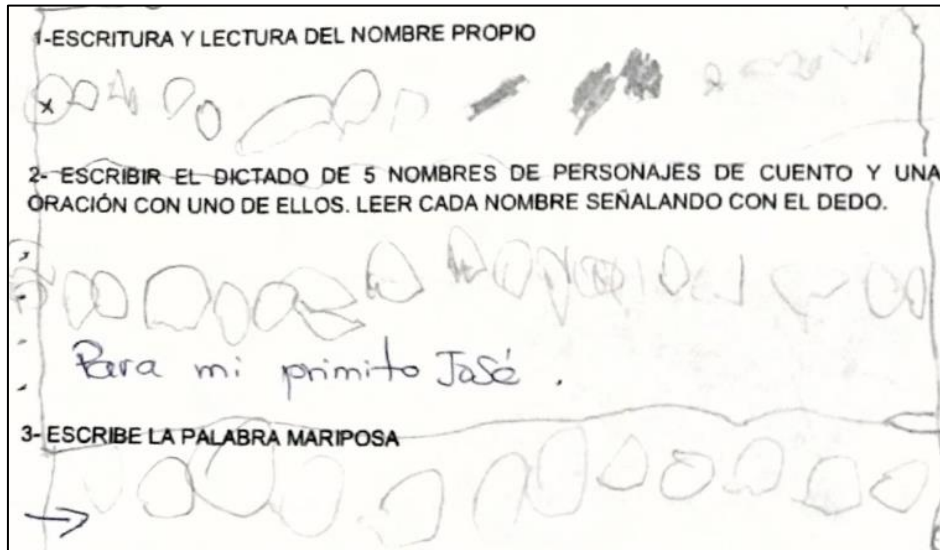 1-ESCRITURA Y LECTURA DEL NOMBRE PROPIO
2- ESCRIBIR EL DICTADO DE 5 NOMBRES DE PERSONAJES DE CUENTO Y UNA
ORACIÓN CON UNO DE ELLOS. LEER CADA NOMBRE SEÑALANDO CON EL DEDO.
Para mi primito José.
3- ESCRIBE LA PALABRA MARIPOSA